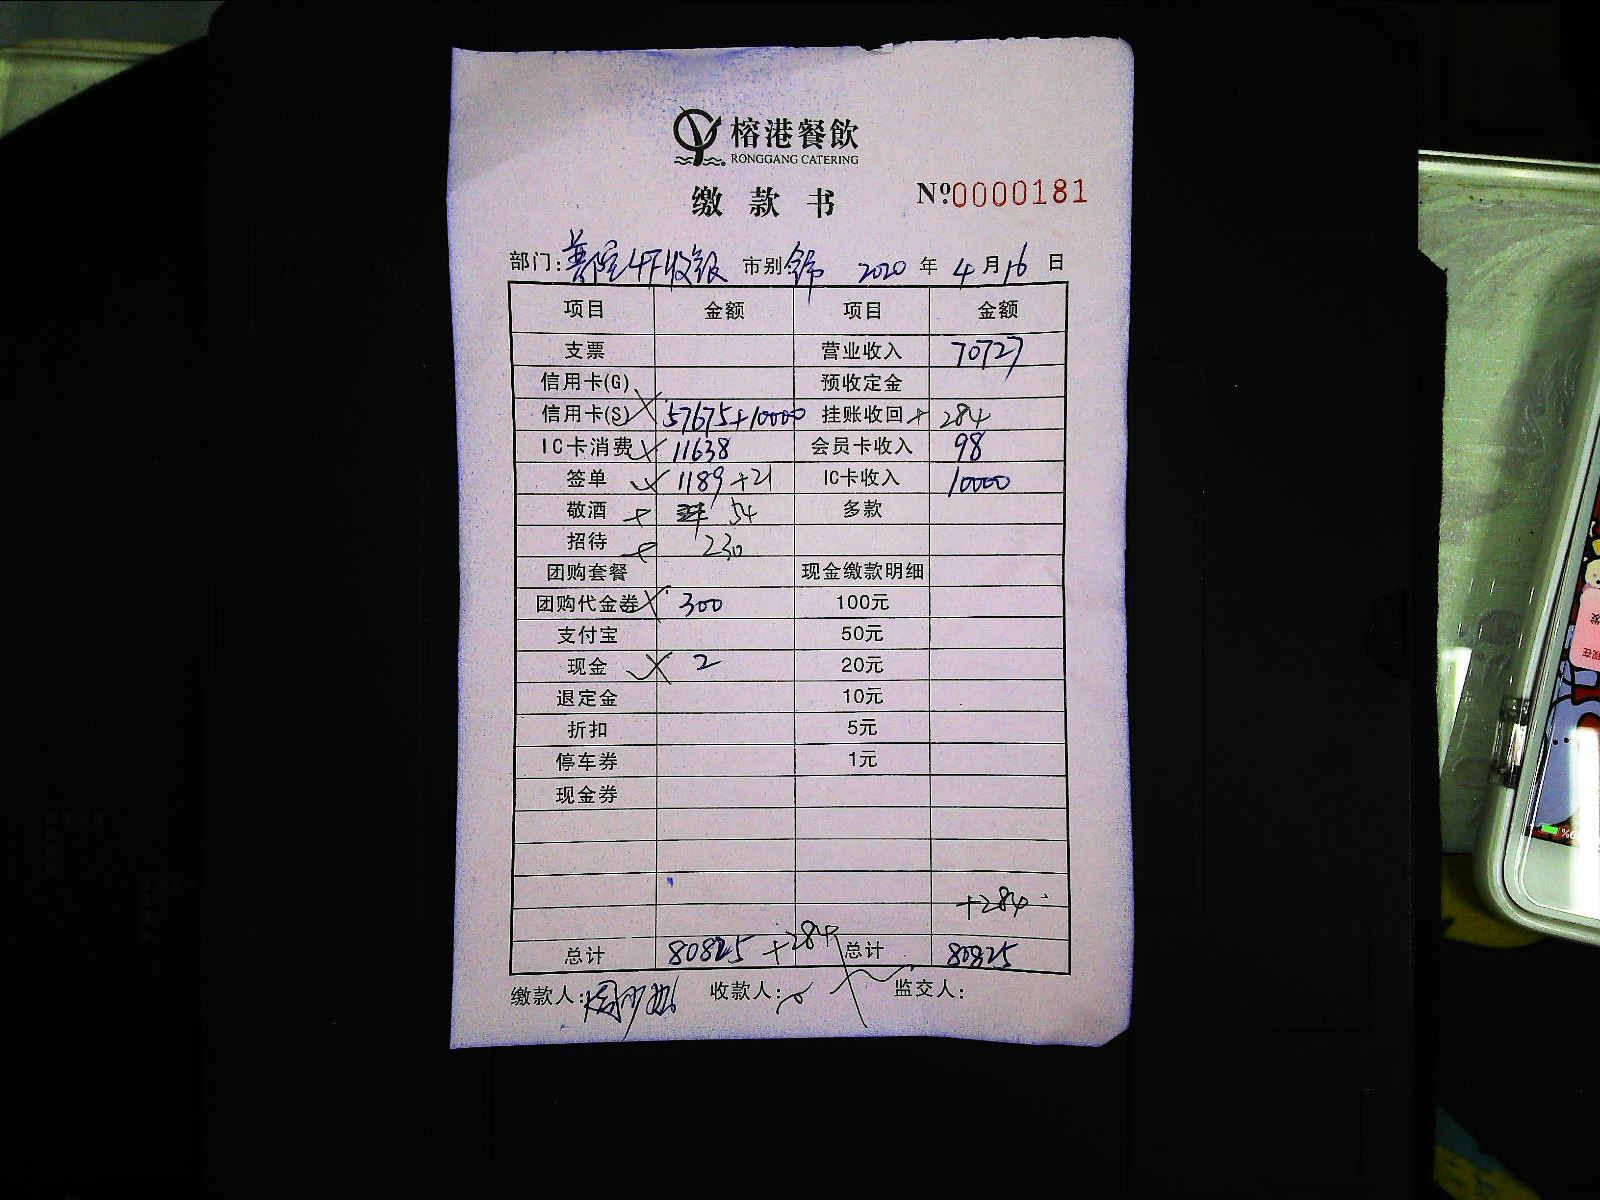 榕港餐飲
RONGGANG CATERING
缴款书 Nº 0000181
部门: 4F收银 市别: 2020 年 4 月 16 日
项目 金额 项目 金额
支票 营业收入 70727
信用卡(G) 预收定金
信用卡(S) 57675+10000 挂账收回 + 284
IC卡消费 11638 会员卡收入 98
签单 1189 +21 IC卡收入 10000
敬酒 + 54 多款
招待 + 230
团购套餐 现金缴款明细
团购代金券 300 100元
支付宝 50元
现金 2 20元
退定金 10元
折扣 5元
停车券 1元
现金券
+284
总计 80825 +284 总计 80825
缴款人: 收款人: 监交人: